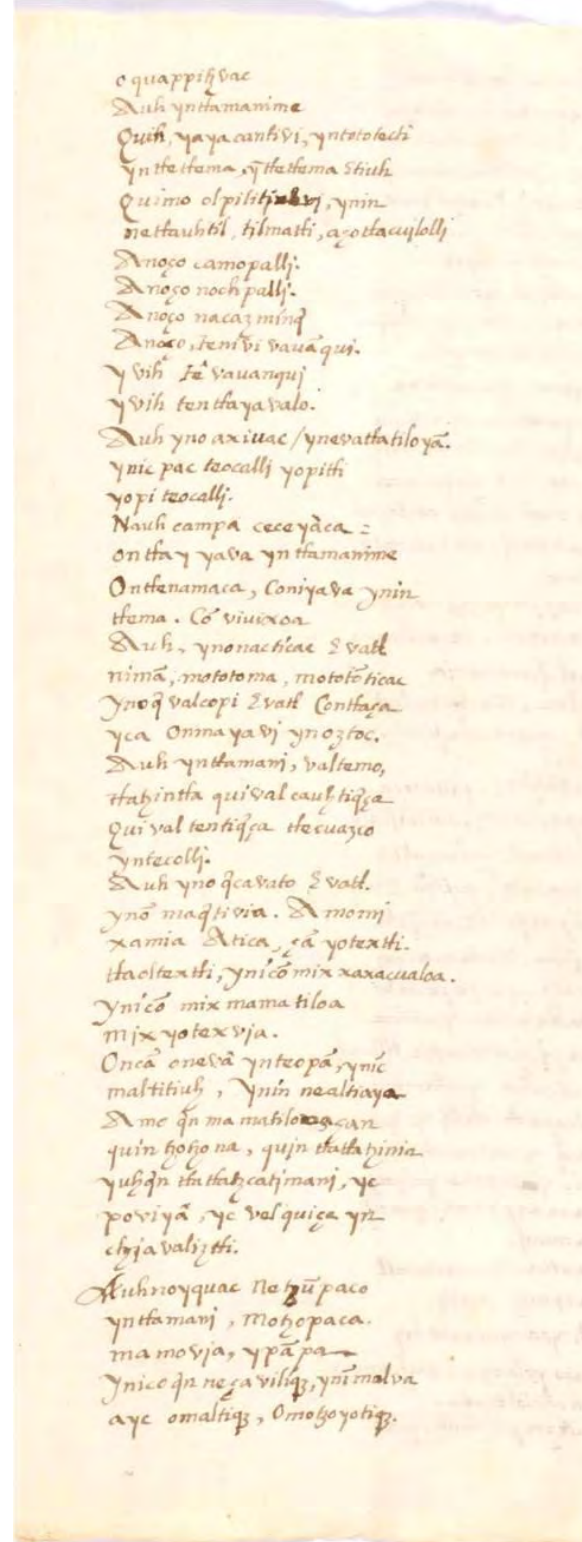 oquappitzvac
Auh yntlamanime
Quih, yayacantivi, yntototecti
yn tletlema, ỹ tletlema stiuh
Quimo olpilitivi, ynin
netlauhtil, tilmatli, aço tlacuilolli
Anoço camopalli.
Anoço nochpalli.
Anoço nacazmínq̃
Anoço, tenivi vavãqui.
yvih tẽ vavanqui
yvih tentlayavalo.
Auh yno axivac / ynevatlatiloyã.
ynicpac teocalli yopitli
yopi teocalli.
Nauhcampa ceceyàca =
ontlay yava yn tlamanime
Ontlenamaca, Coniyava ynin
tlema. Cõ vivixoa
Auh, ynonacticac Evatl
nimã, mototoma, mototõticac
ynoq̃ valcopi Evatl Contlaça
yca Onmayavi ynoztoc.
Auh yntlamani, valtemo,
tlatzintla quivalcauhtiq̃ça
Qui val tentiq̃ça tlecuazco
yntecolli.
Auh yno q̃cavato Evatl.
ynõ maq̃tivia. Amomi
xamia Atica, çã yotextli.
tlaoltextli, ynicõ mix xaxacualoa.
ynicõ mix mamatiloa
mix yotexvia.
Oncã onevã ynteopã, ynic
maltitiuh, ynin nealtiaya
Amo q̃n ma matilo çan
quin tzotzona, quin tlatlatzinia
yuhq̃n tlatlatzcatimani, yc
poviyã, yc velquiça yn
chijavaliztli.
Auhnoyquac Netzũpaco
yntlamani, motzopaca.
mamovia, ypãpa
ynicoq̃n neçavilitq̃z, ynĩmalva
ayc omaltiq̃z, Omotzoyotiq̃z.